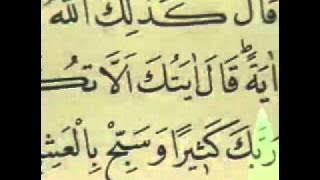 قَالَ كَذٰلِكَ اللّٰهُ
اٰيَةً ؕ قَالَ اٰيَتُكَ اَلَّا تُكَ
رَبَّكَ كَثِيْرًا وَّسَبِّحْ بِالْعَشِيِّ